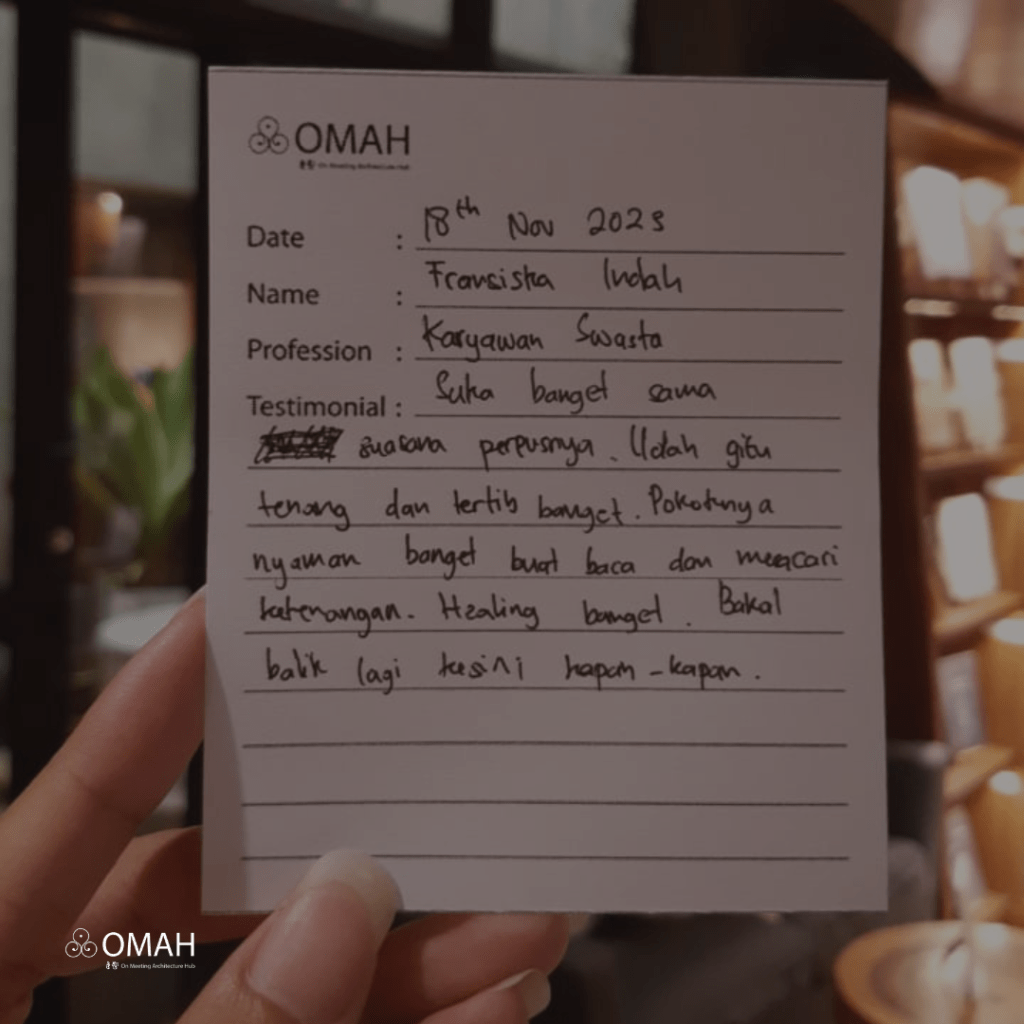 OMAH
On Meeting Architecture Hub
Date : 18th Nov 2023
Name : Fransiska Indah
Profession : Karyawan Swasta
Testimonial : Suka banget sama
suasana perpusnya. Udah gitu
tenang dan tertib banget. Pokoknya
nyaman banget buat baca dan mencari
ketenangan. Healing banget. Bakal
balik lagi kesini kapan-kapan.
OMAH
On Meeting Architecture Hub